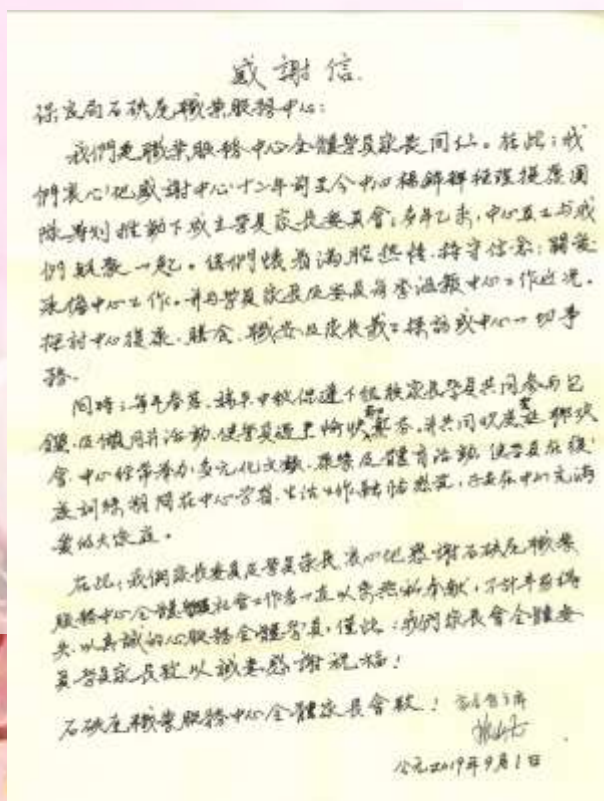 感謝信.
保良局石硤尾職業服務中心:
我們是職業服務中心全體學員家長同仁。在此:我
們衷心地感謝中心十二年前至今中心楊 經理 團
隊籌劃推動下成立學員家長委員會;多年乙來,中心員工与我
們 聚一起。 們懷着滿腔熱情.持守信念;關愛
中心工作。并与學員家長及委員每季滙報中心工作近况。
探討中心復康.膳食、職安及家長義工探訪或中心一切事
務.
同時;每年春茗、端午中秋 下組織家長學員共同參与包
糭.及做月 活動,使學員過 愉快 .并共同欢度 聯欢
會.中心經常 办多元化文藝、康樂及體育活動,使學員在復
康訓練期間在中心学習、生活工作 ,
愛的大家庭。
在此;我們家長委員及學員家長衷心地感謝石硤尾職業
服務中心全體 社會工作者一直以來無私奉獻,不計 得
失.以真誠的心服務全體學員,僅此:我們家長會全體委
員學員家長致以誠意感謝祝福!
石硤尾職業服務中心全體家長會致!
公元2019年9月1日